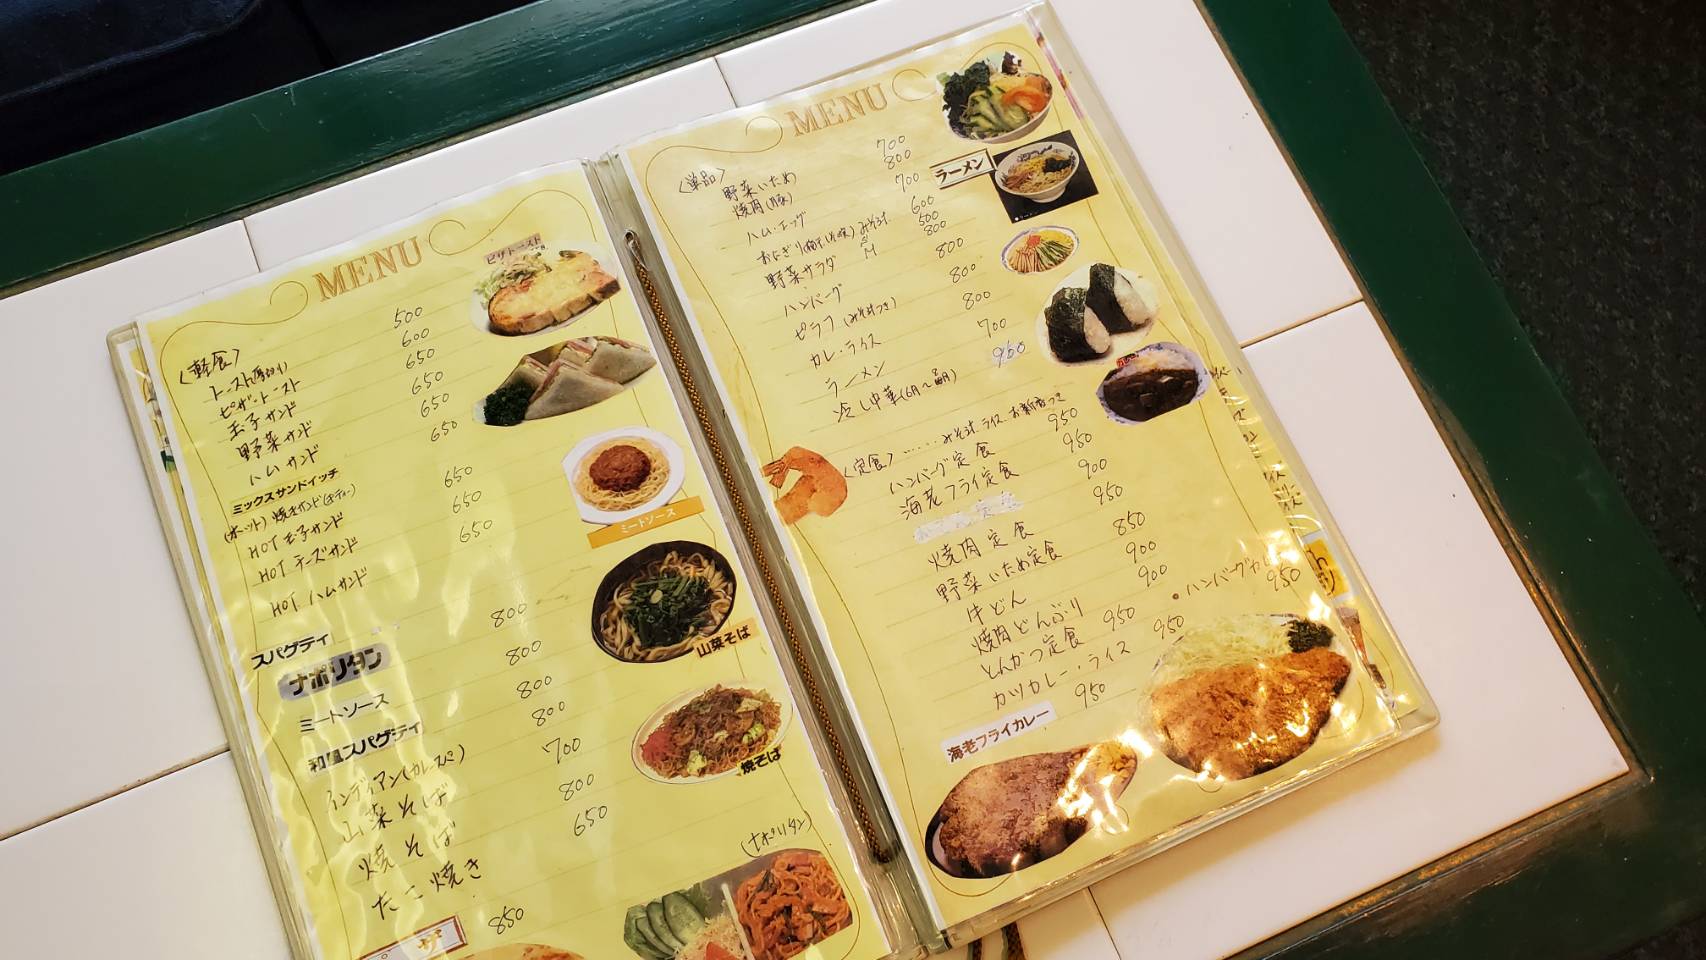 MENU
〈軽食〉
トースト(厚切り) 500
ピザ・トースト 600
玉子サンド 650
野菜サンド 650
ハムサンド 650
ミックスサンドイッチ 650
(ホット)焼きサンド
HOT 玉子サンド 650
HOT チーズサンド 650
HOT ハムサンド 650
スパゲティ
ナポリタン 800
ミートソース 800
和風スパゲティ 800
インディアン(カレースパ) 800
山菜そば 700
焼そば 800
たこ焼き 650
850
ピザトースト
ミートソース
山菜そば
焼そば
(ナポリタン)
MENU
〈単品〉
野菜いため 700
焼肉(豚) 800
ハム・エッグ 700
おにぎり みそ汁 600
野菜サラダ S 500
M 800
ハンバーグ 800
ピラフ(みそ汁つき) 800
カレーライス 800
ラーメン 700
冷し中華 950
ラーメン
〈定食〉……みそ汁、ライス、お新香つき
ハンバーグ定食 950
海老フライ定食 950
焼肉定食 900
野菜いため定食 950
牛どん 850
焼肉どんぶり 900
とんかつ定食 900
カツカレー・ライス 950
海老フライカレー 950
・ハンバーグカレー 950
950